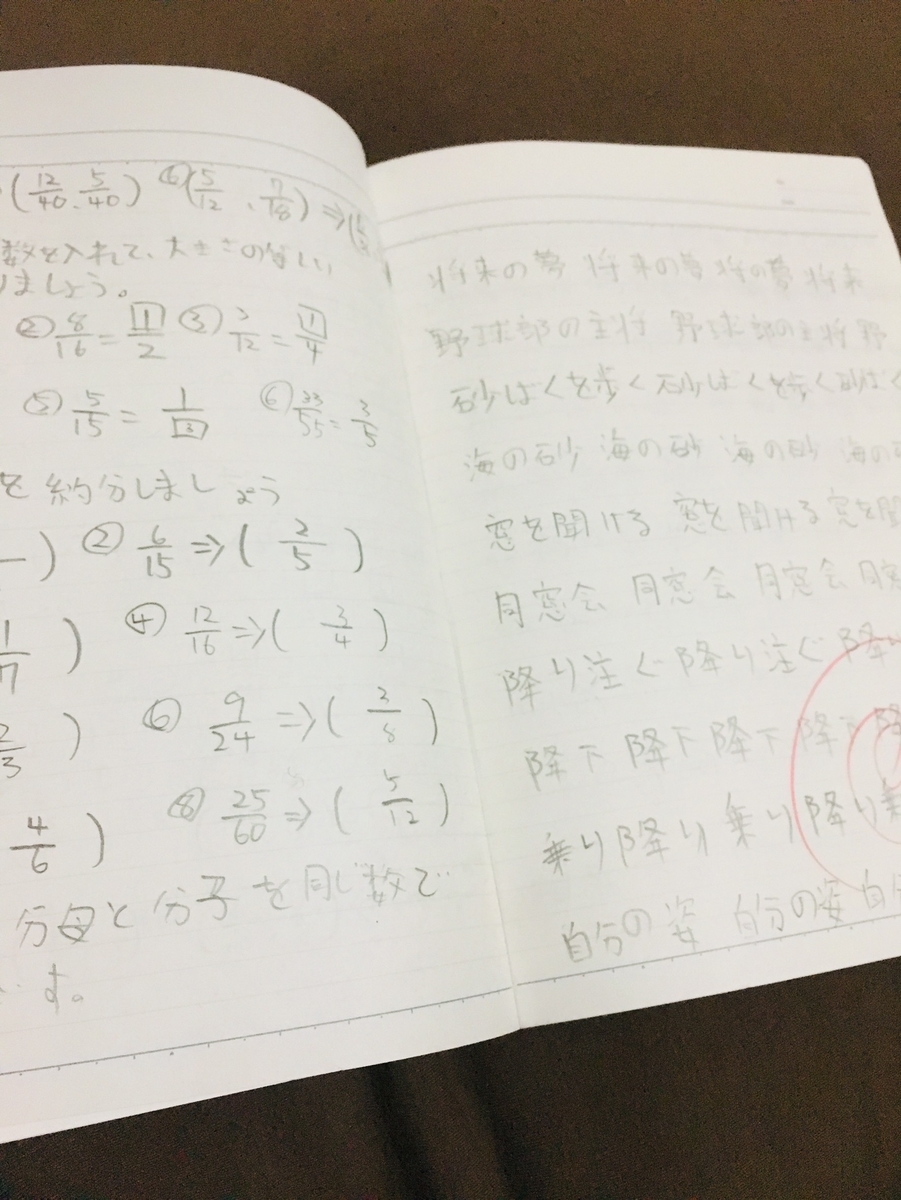 (12/40, 5/40) ⑥(5/12, 7/18) ⇒(
数を入れて、大きさの等しい
りましょう。
② 8/16 = 1/2 ③ 3/12 = 1/4
⑤ 5/15 = 1/3 ⑥ 33/55 = 3/5
を約分しましょう
) ② 6/15 ⇒ ( 2/5 )
1/7 ) ④ 12/16 ⇒ ( 3/4 )
2/3 ) ⑥ 9/24 ⇒ ( 3/8 )
4/6 ) ⑧ 25/60 ⇒ ( 5/12 )
分母と分子を同じ数で
す。
将来の夢 将来の夢 将の夢 将来
野球部の主将 野球部の主将 野
砂ばくを歩く 砂ばくを歩く 砂ばく
海の砂 海の砂 海の砂 海の
窓を開ける 窓を開ける 窓を開
同窓会 同窓会 同窓会 同窓
降り注ぐ 降り注ぐ 降り
降下 降下 降下 降下 降
乗り降り 乗り降り 乗
自分の姿 自分の姿 自分